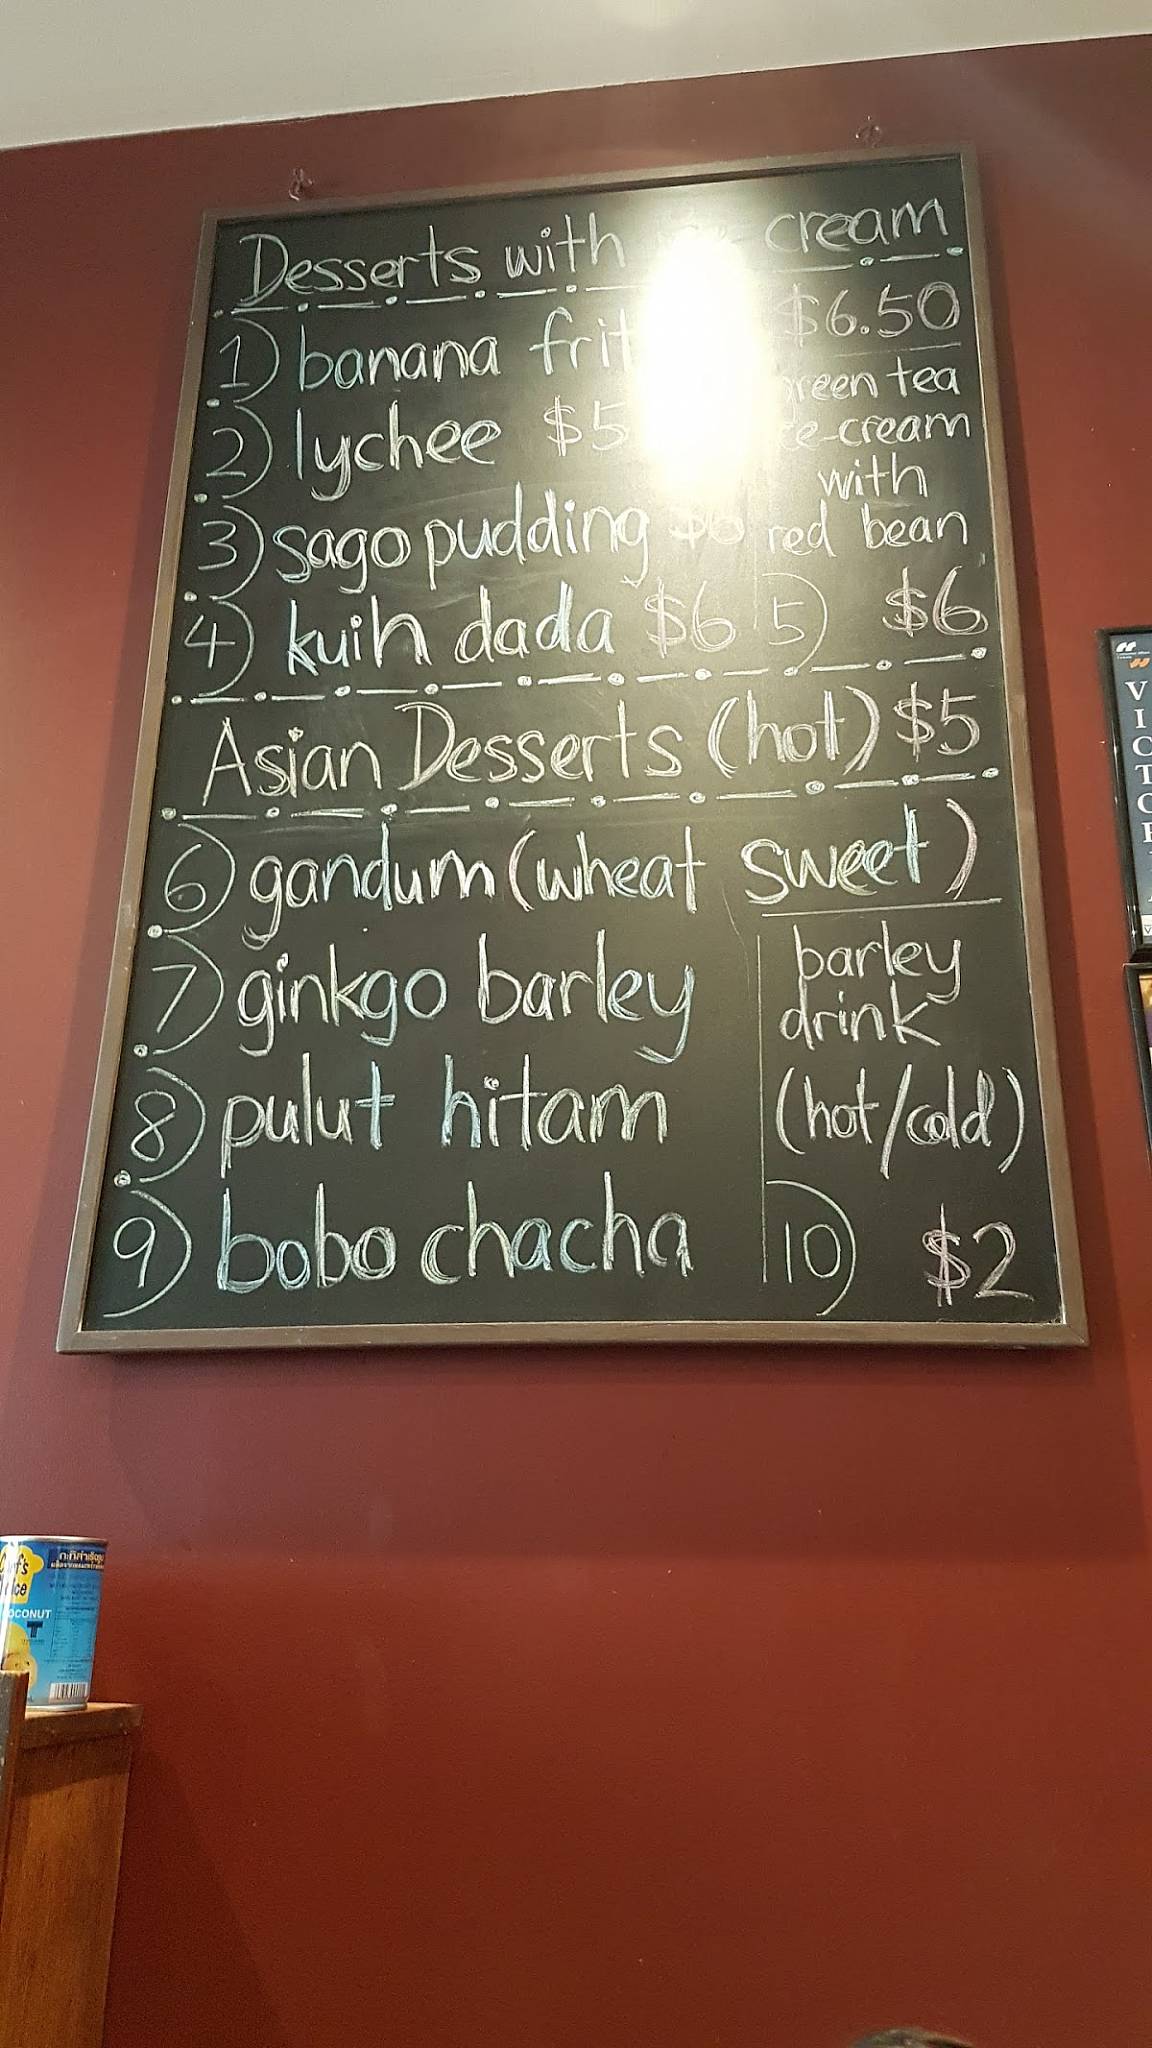 Desserts with cream
1) banana $6.50
2) lychee $5
3) sago pudding $6
4) kuih dada $6
green tea
ice-cream
with
red bean
5) $6
Asian Desserts (hot) $5
6) gandum (wheat sweet)
7) ginkgo barley
8) pulut hitam
9) bobo chacha
barley
drink
(hot/cold)
10) $2